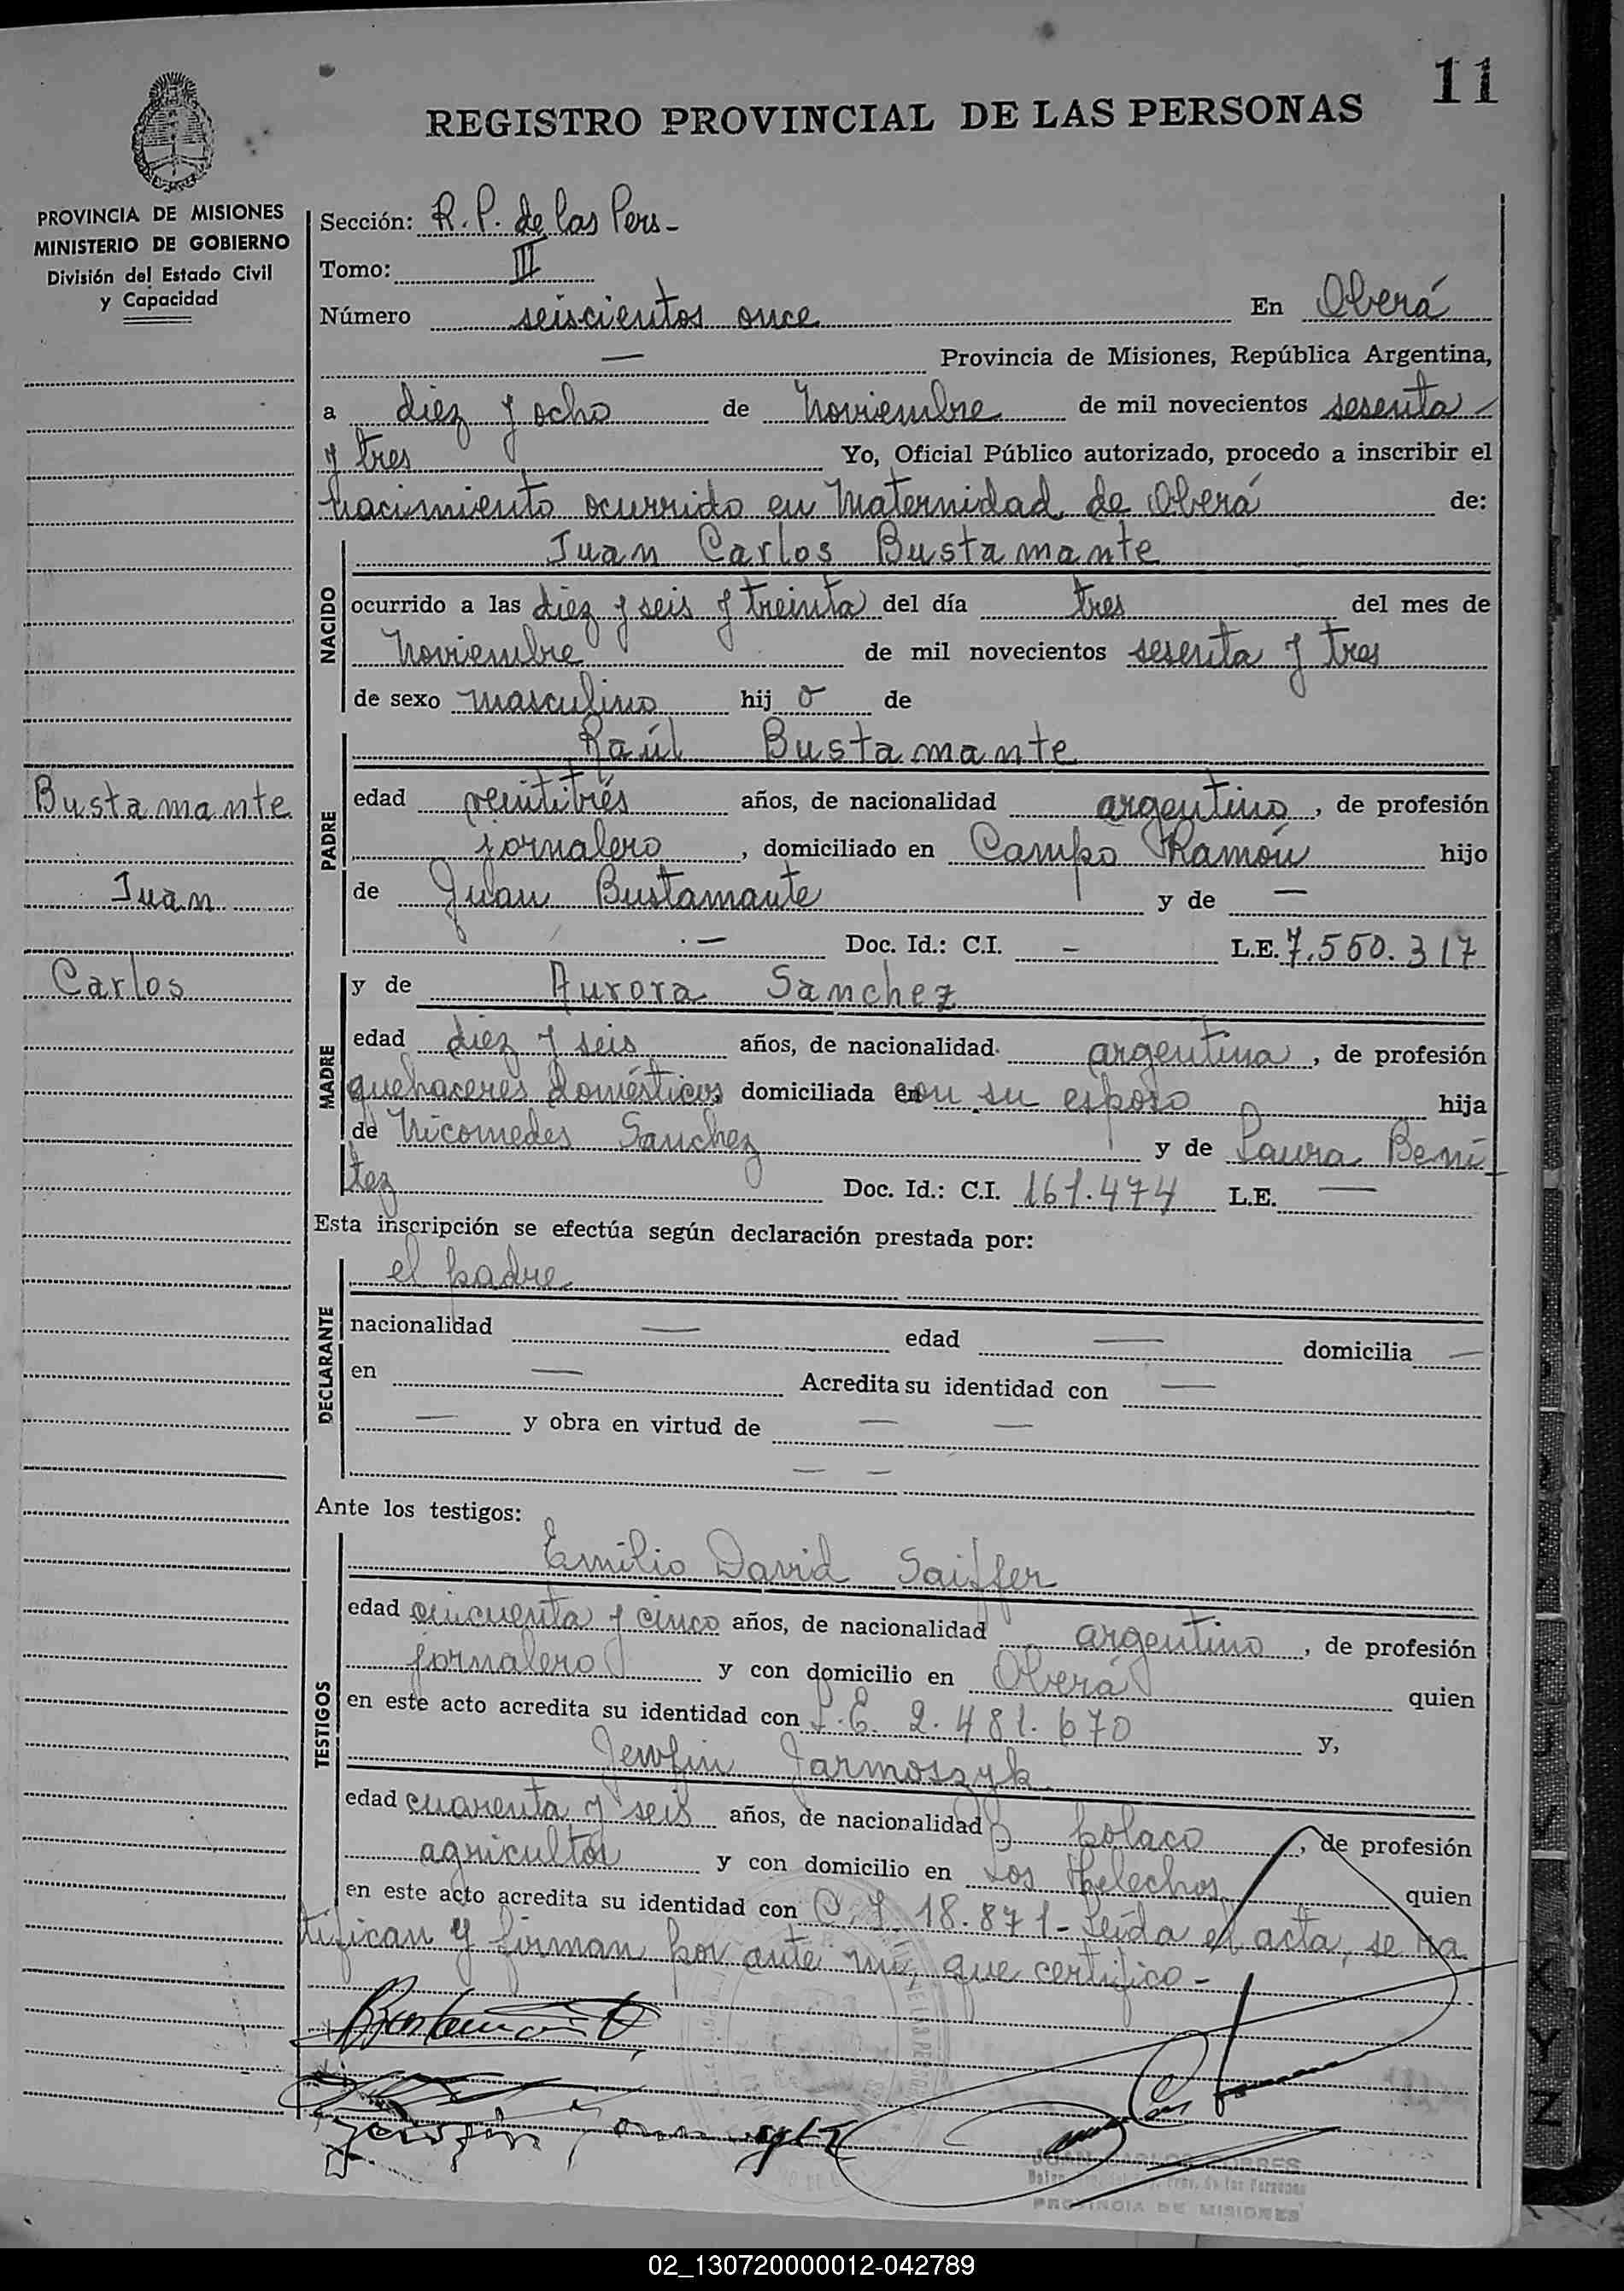 11
REGISTRO PROVINCIAL DE LAS PERSONAS
PROVINCIA DE MISIONES
MINISTERIO DE GOBIERNO
División del Estado Civil
y Capacidad
Sección: R. P. de las Pers-
Tomo: III
Número seiscientos once En Oberá
— Provincia de Misiones, República Argentina,
a diez y ocho de Noviembre de mil novecientos sesenta
y tres Yo, Oficial Público autorizado, procedo a inscribir el
nacimiento ocurrido en Maternidad de Oberá de:
NACIDO
Juan Carlos Bustamante
ocurrido a las diez y seis y treinta del día tres del mes de
Noviembre de mil novecientos sesenta y tres
de sexo masculino hij o de
PADRE
Raúl Bustamante
Bustamante
Juan
Carlos
edad veintitrés años, de nacionalidad argentino, de profesión
jornalero, domiciliado en Campo Ramón hijo
de Juan Bustamante y de —
— Doc. Id.: C.I. — L.E. 7.550.317
MADRE
y de Aurora Sanchez
edad diez y seis años, de nacionalidad argentina, de profesión
quehaceres domésticos domiciliada en con su esposo hija
de Nicomedes Sanchez y de Laura Bení-
tez Doc. Id.: C.I. 161.474 L.E. —
Esta inscripción se efectúa según declaración prestada por:
DECLARANTE
el padre
nacionalidad — edad — domicilia —
en — Acredita su identidad con —
— y obra en virtud de — —
— —
Ante los testigos:
TESTIGOS
Emilio David Saiffer
edad cincuenta y cinco años, de nacionalidad argentino, de profesión
jornalero y con domicilio en Oberá quien
en este acto acredita su identidad con L.E. 2.481.670 y,
Jewfin Jarmoszyk
edad cuarenta y seis años, de nacionalidad polaco, de profesión
agricultor y con domicilio en Los Helechos quien
en este acto acredita su identidad con C.I. 18.871- Leída el acta, se ra
tifican y firman por ante mí, que certifico-
Bustamante
JUAN CARLOS TORRES
PROVINCIA DE MISIONES
X
Y
Z
02_130720000012-042789